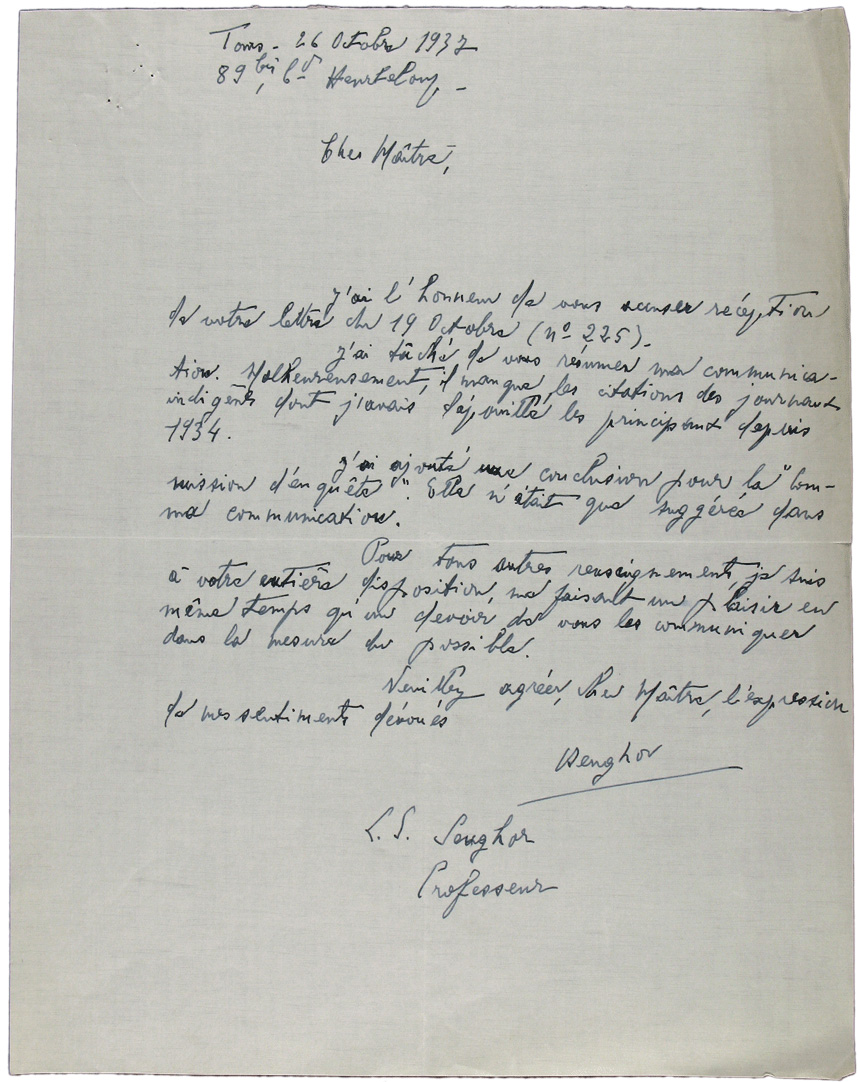 Tours - 26 Octobre 1937
89 bis, Bd Heurteloup -
Cher Maître,
J'ai l'honneur de vous accuser réception
de votre lettre du 19 Octobre (n° 225).
J'ai tâché de vous résumer ma communica-
tion. Malheureusement, il manque les citations des journaux
indigènes dont j'avais dépouillé les principaux depuis
1934.
J'ai ajouté une conclusion pour la "Com-
mission d'enquête". Elle n'était que suggérée dans
ma communication.
Pour tous autres renseignements, je suis
à votre entière disposition, me faisant un plaisir en
même temps qu'un devoir de vous les communiquer
dans la mesure du possible.
Veuillez agréer, cher Maître, l'expression
de mes sentiments dévoués
Senghor
L. S. Senghor
Professeur